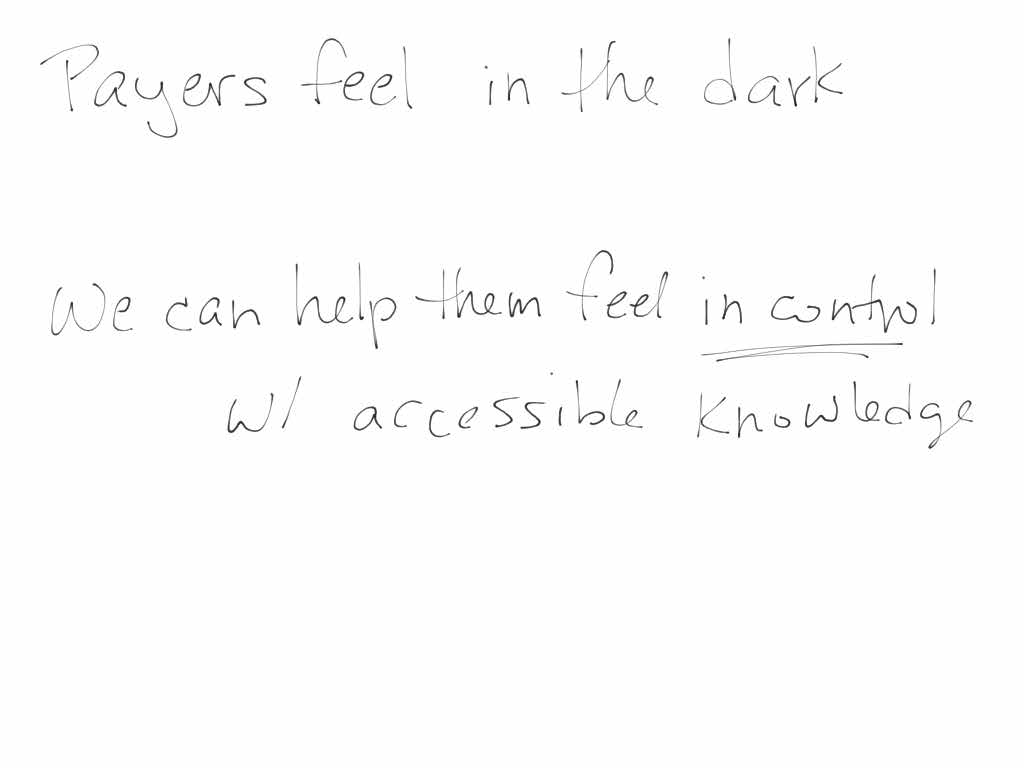 Payers feel in the dark
We can help them feel in control
w/ accessible knowledge